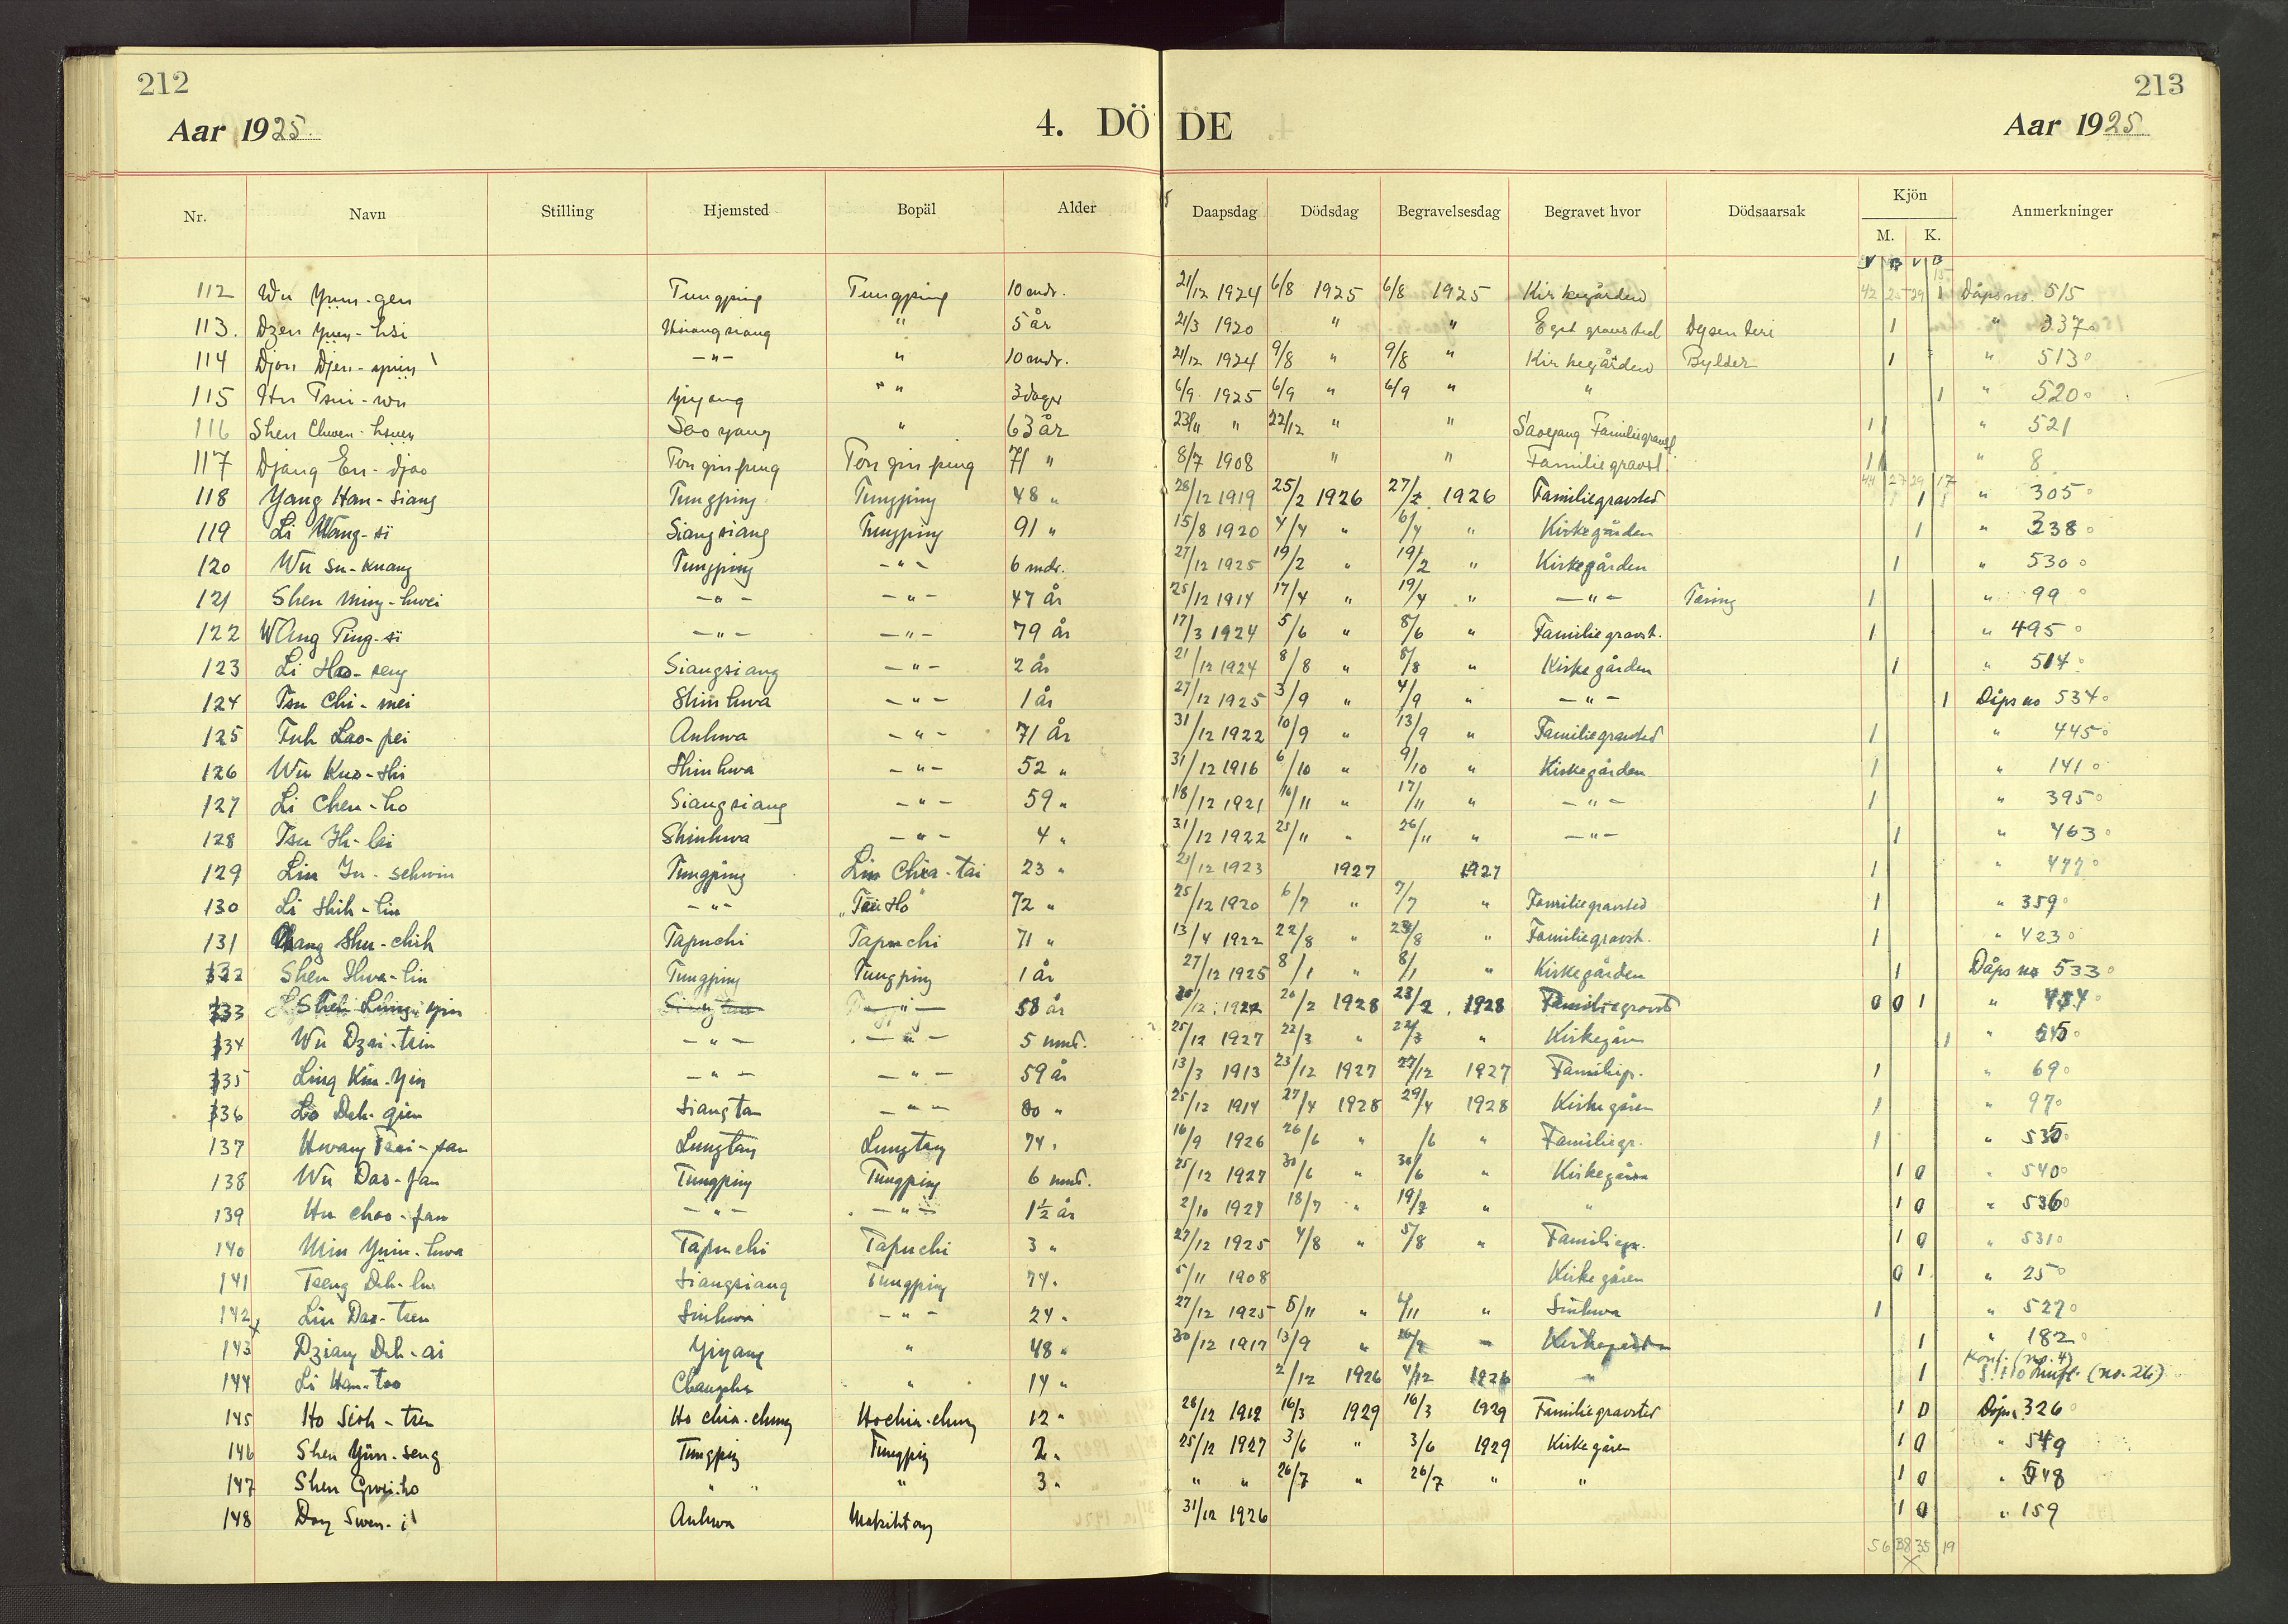 212
213
Aar 1925.
4. DÖDE
Aar 1925.
Nr. Navn Stilling Hjemsted Bopäl Alder Daapsdag Dödsdag Begravelsesdag Begravet hvor Dödsaarsak Kjön Anmerkninger
M. K.
V B V B
112 Wu Yuin-gen Tungping Tungping 10 mdr. 21/12 1924 6/8 1925 6/8 1925 Kirkegården 42 25 29 15 1 Dåpsno. 515
113. Dzen Yuen-hsi Hsiangsiang " 5 år 21/3 1920 " " Eget gravsted Dysenteri 1 " 337
114 Djou Djen-yuin -"- " 10 mdr. 21/12 1924 9/8 " 9/8 " Kirkegården Bylder 1 " 513
115 Hu Tsui-wu Yiyang " 3 dager 6/9 1925 6/9 " 6/9 " " 1 " 520
116 Shen Chwen-hsuen Saoyang " 63 år 23/11 " 22/12 " " Saoyang Familiegravst. 1 " 521
117 Djang En-djao Ton gin ping Ton gin ping 71 " 8/7 1908 " " Familiegravst 1 " 8
44 27 29 17
118 Yang Han-siang Tungping Tungping 48 " 28/12 1919 25/2 1926 27/2 1926 Familiegravsted 1 " 305
119 Li Wang-si Siangsiang Tungping 91 " 15/8 1920 4/4 " 6/4 " Kirkegården 1 " 338
120 Wu Su-kuang Tungping -"- 6 mdr. 27/12 1925 19/2 " 19/2 " Kirkegården 1 " 530
121 Shen Ming-hwei -"- -"- 47 år 25/12 1914 17/4 " 19/4 " -"- Tæring 1 " 99
122 Wang Ping-si -"- -"- 79 år 17/3 1924 5/6 " 8/6 " Familiegravst. 1 " 495
123 Li Hao-seng Siangsiang -"- 2 år 21/12 1924 8/8 " 8/8 " Kirkegården 1 " 514
124 Tsu Chi-mei Shinhwa -"- 1 år 27/12 1925 3/9 " 4/9 " -"- 1 Dåps no 534
125 Fuh Lao-pei Anhwa -"- 71 år 31/12 1922 10/9 " 13/9 " Familiegravsted 1 " 445
126 Wu Kuo-shi Shinhwa -"- 52 " 31/12 1916 6/10 " 9/10 " Kirkegården 1 " 141
127 Li Chen-ho Siangsiang -"- 59 " 18/12 1921 16/11 " 17/11 " -"- 1 " 395
128 Tsu Ih-lai Shinhwa -"- 4 " 31/12 1922 25/11 " 26/11 " -"- 1 " 463
129 Liu Ju-schwin Tungping Liu Chia-tai 23 " 23/12 1923 1927 1927 1 " 477
130 Li Shih-lin -"- "Tsü Ho" 72 " 25/12 1920 6/7 " 7/7 " Familiegravsted 1 " 359
131 Chang Shu-chih Tapuchi Tapuchi 71 " 13/4 1922 22/8 " 23/8 " Familiegravst. 1 " 423
132 Shen Hwa-lin Tungping Tungping 1 år 27/12 1925 8/1 " 8/1 " Kirkegården 1 Dåps no 533
133 Shen Ling-yin -"- 58 år 1922 20/2 1928 23/2 1928 Familiegravst 0 0 1 "
134 Wu Dzai-tsin -"- -"- 5 mnd. 25/12 1927 22/3 " 22/3 " Kirkegåren 1 " 545
135 Ling Kin-Yin -"- -"- 59 år 13/3 1913 23/12 1927 27/12 1927 Familiegr. 1 " 69
136 Lo Deh-gien Siangtan -"- 80 " 25/12 1914 27/4 1928 29/4 1928 Kirkegåren 1 " 97
137 Hwang Tsai-fan Lungtan Lungtan 74 " 16/9 1926 26/6 " /6 " Familiegr. 1 " 535
138 Wu Dao-fan Tungping Tungping 6 mnd. 25/12 1927 30/6 " 30/6 " Kirkegåren 1 0 " 540
139 Hu Chao-fan -"- -"- 1½ år 2/10 1927 18/7 " 19/7 " " 1 0 " 536
140 Min Yuin-hwa Tapuchi Tapuchi 3 " 27/12 1925 4/8 " 5/8 " Familiegr. 1 0 " 531
141 Tseng Deh-lin Siangsiang Tungping 74 " 5/11 1908 Kirkegåren 0 1 " 25
142 x Liu Dao-tsen Sinhwa -"- 24 " 27/12 1925 5/11 " /11 " Sinhwa 1 " 527
143 Dziang Deh-ai Yiyang " 48 " 30/12 1917 13/9 " 16/9 " Kirkegården 1 " 182
144 Li Han-tao Changsha " 14 " 2/12 1926 4/12 1926 " 1 Konf. (no. 4) (no. 26)
145 Ho Sioh-tsen Ho chia-chung Ho chia-chung 12 " 26/12 1919 16/3 1929 16/3 1929 Familiegravsted 1 0 Dåps. 326
146 Shen Yün-seng Tungping Tungping 2 " 25/12 1927 3/6 " 3/6 1929 Kirkegåren 1 0 " 549
147 Shen Gwei-ho " " " 3 " " " 26/7 " 26/7 " " 1 0 " 548
148 Swen-i Anhwa 31/12 1926 1 0 " 159
56 38 35 19
x